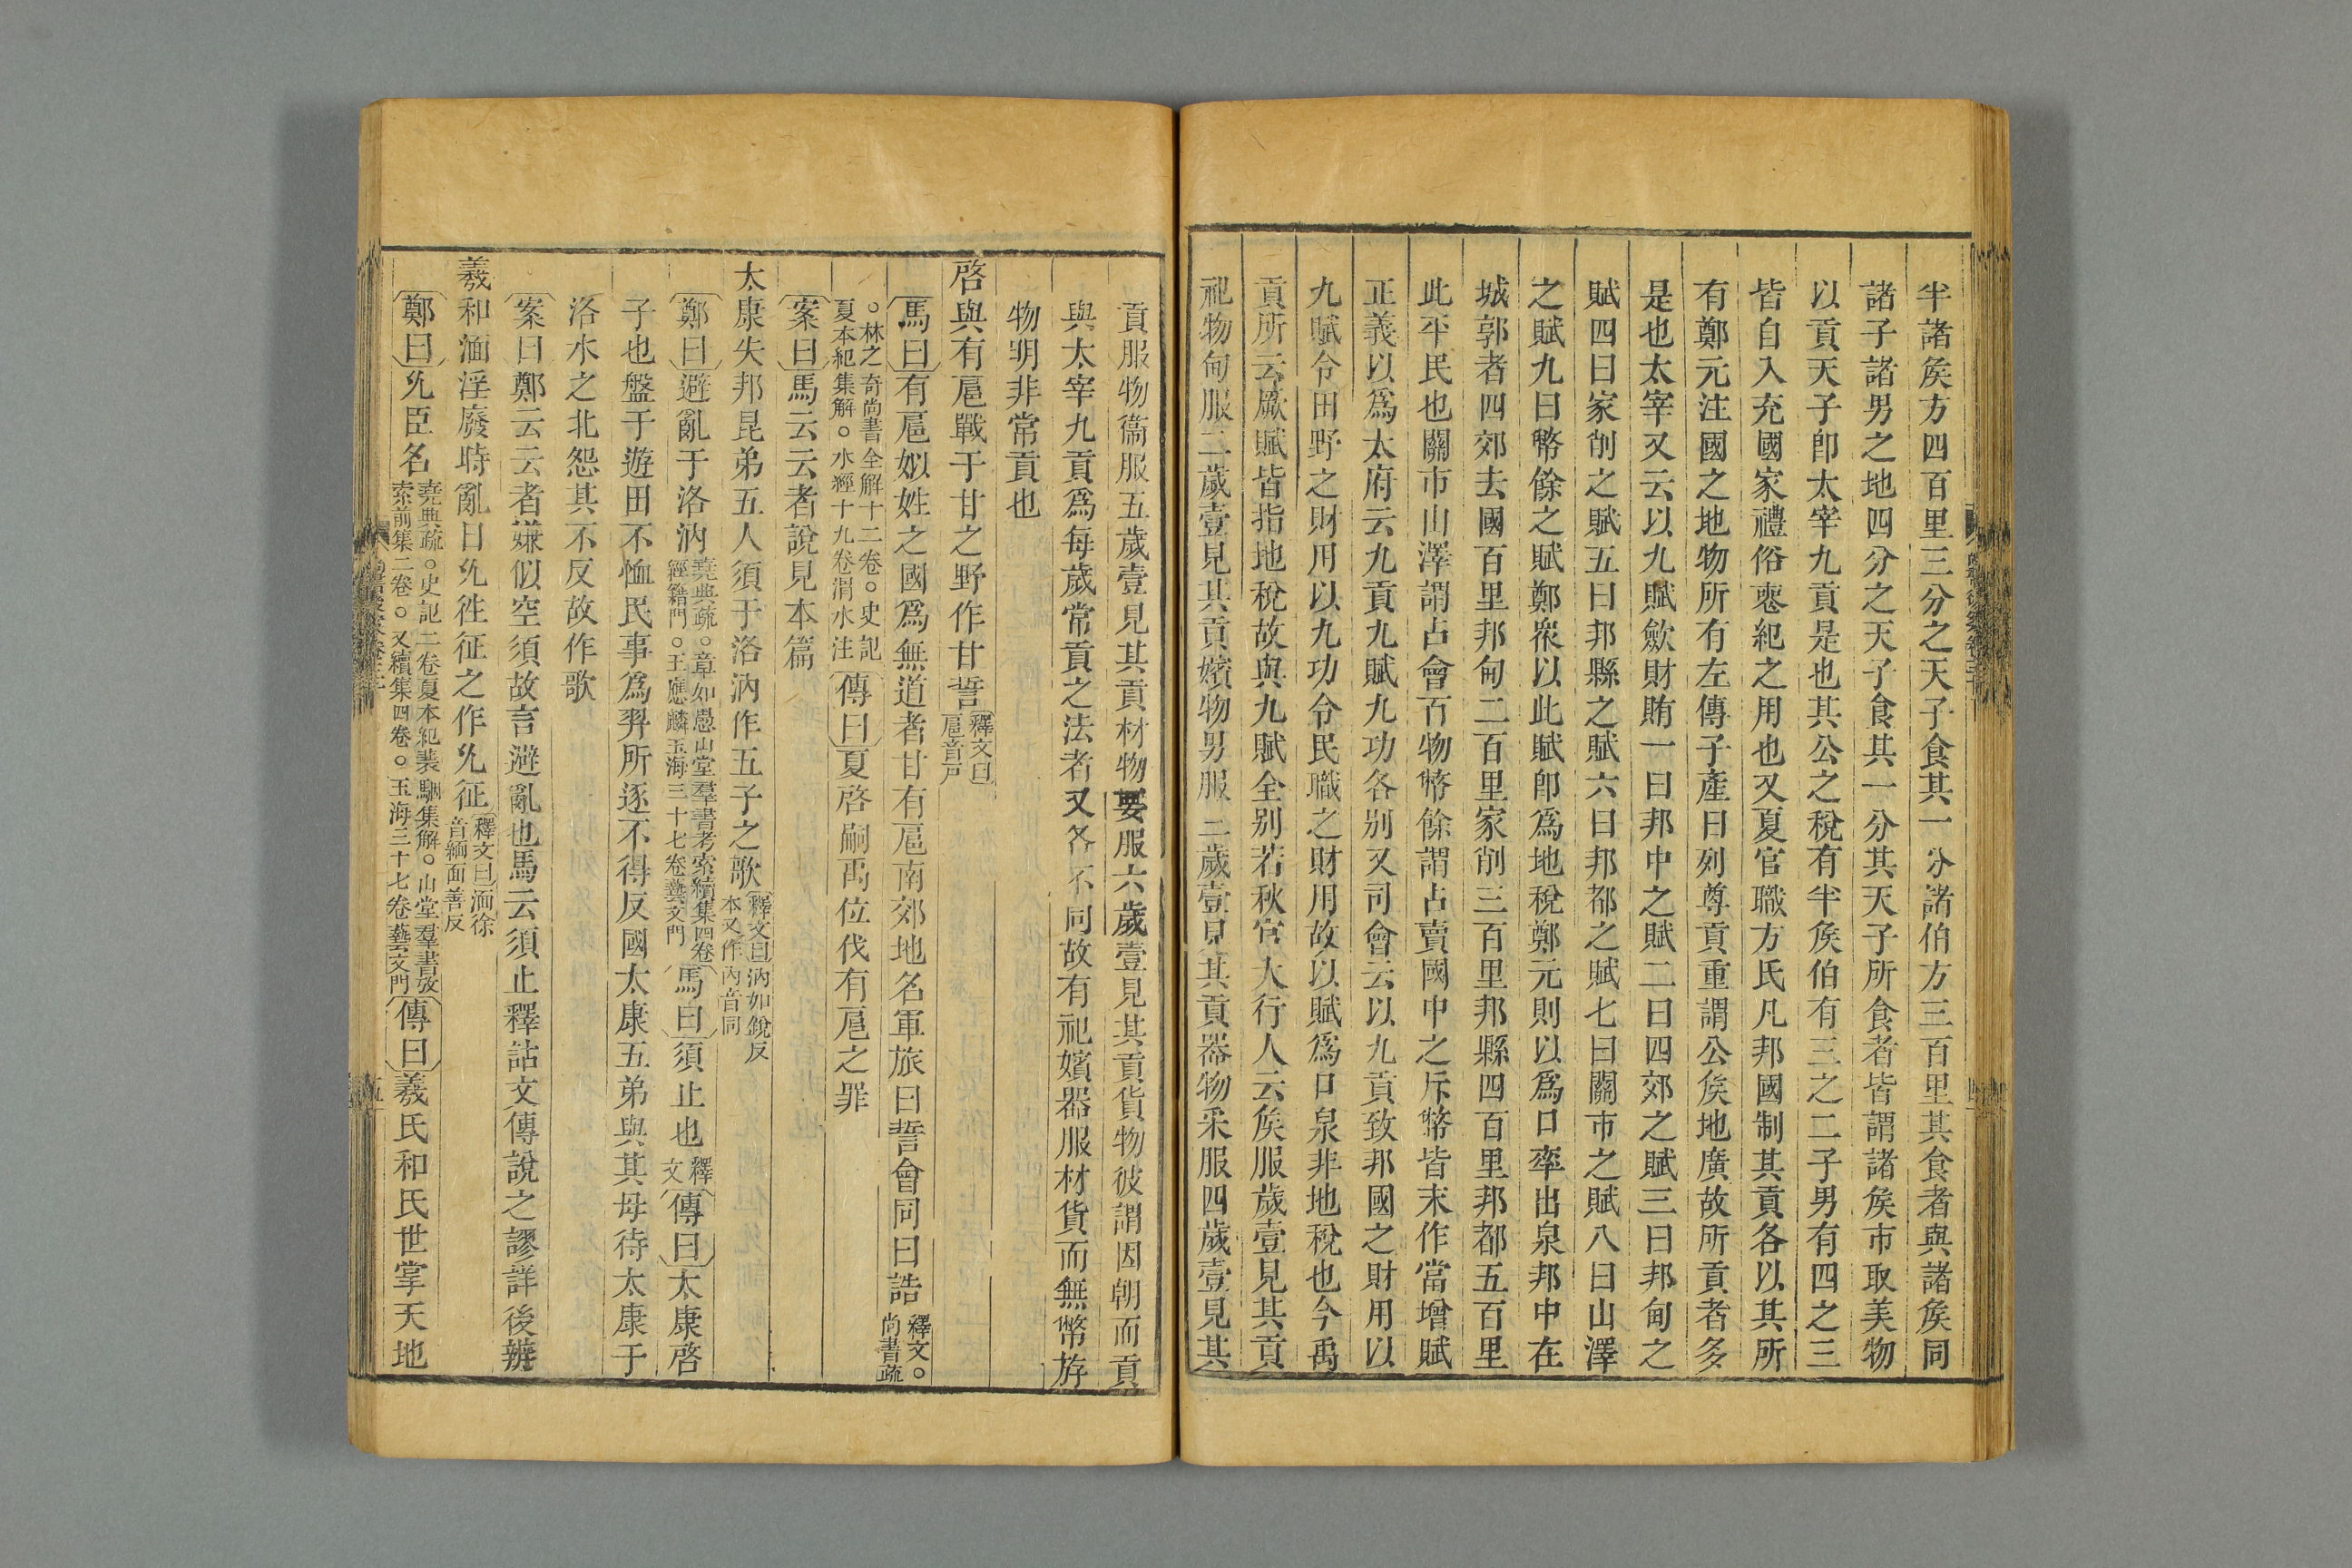 半諸矦方四百里三分之天子食其一分諸伯方三百里其食者與諸矦同
諸子諸男之地四分之天子食其一分其天子所食者皆謂諸矦市取美物
以貢天子卽太宰九貢是也其公之稅有半矦伯有三之二子男有四之三
皆自入充國家禮俗喪紀之用也又夏官職方氏凡邦國制其貢各以其所
有鄭元注國之地物所有左傳子產曰列尊貢重謂公矦地廣故所貢者多
是也太宰又云以九賦歛財賄一曰邦中之賦二曰四郊之賦三曰邦甸之
賦四曰家削之賦五曰邦縣之賦六曰邦都之賦七曰關市之賦八曰山澤
之賦九曰幣餘之賦鄭衆以此賦卽爲地稅鄭元則以爲口率出泉邦中在
城郭者四郊去國百里邦甸二百里家削三百里邦縣四百里邦都五百里
此平民也關市山澤謂占會百物幣餘謂占賣國中之斥幣皆末作當增賦
正義以爲太府云九貢九賦九功各別又司會云以九貢致邦國之財用以
九賦令田野之財用以九功令民職之財用故以賦爲口泉非地稅也今禹
貢所云厥賦皆指地稅故與九賦全别若秋官大行人云矦服歲壹見其貢
祀物甸服二歲壹見其貢嬪物男服三歲壹見其貢器物采服四歲壹見其
貢服物衞服五歲壹見其貢材物要服六歲壹見其貢貨物彼謂因朝而貢
與太宰九貢爲每歲常貢之法者又各不同故有祀嬪器服材貨而無幣斿
物明非常貢也
啓與有扈戰于甘之野作甘誓釋文曰扈音戸
馬曰有扈姒姓之國爲無道者甘有扈南郊地名軍旅曰誓會同曰誥釋文。尚書疏
。林之奇尚書全解十二卷。史記夏本紀集解。水經十九卷渭水注傳曰夏啓嗣禹位伐有扈之罪
案曰馬云云者說見本篇
太康失邦昆弟五人須于洛汭作五子之歌釋文曰汭如銳反本又作內音同
鄭曰避亂于洛汭堯典疏。章如愚山堂羣書考索續集四卷經籍門。王應麟玉海三十七卷藝文門馬曰須止也釋文傳曰太康啓
子也盤于遊田不恤民事爲羿所逐不得反國太康五弟與其母待太康于
洛水之北怨其不反故作歌
案曰鄭云云者嫌似空須故言避亂也馬云須止釋詁文傳說之謬詳後辨
羲和湎淫廢時亂日㕙徃征之作㕙征釋文曰湎徐音緬面善反
鄭曰㕙臣名堯典疏。史記二卷夏本紀裴駰集解。山堂羣書攷索前集二卷。又續集四卷。玉海三十七卷藝文門傳曰羲氏和氏世掌天地